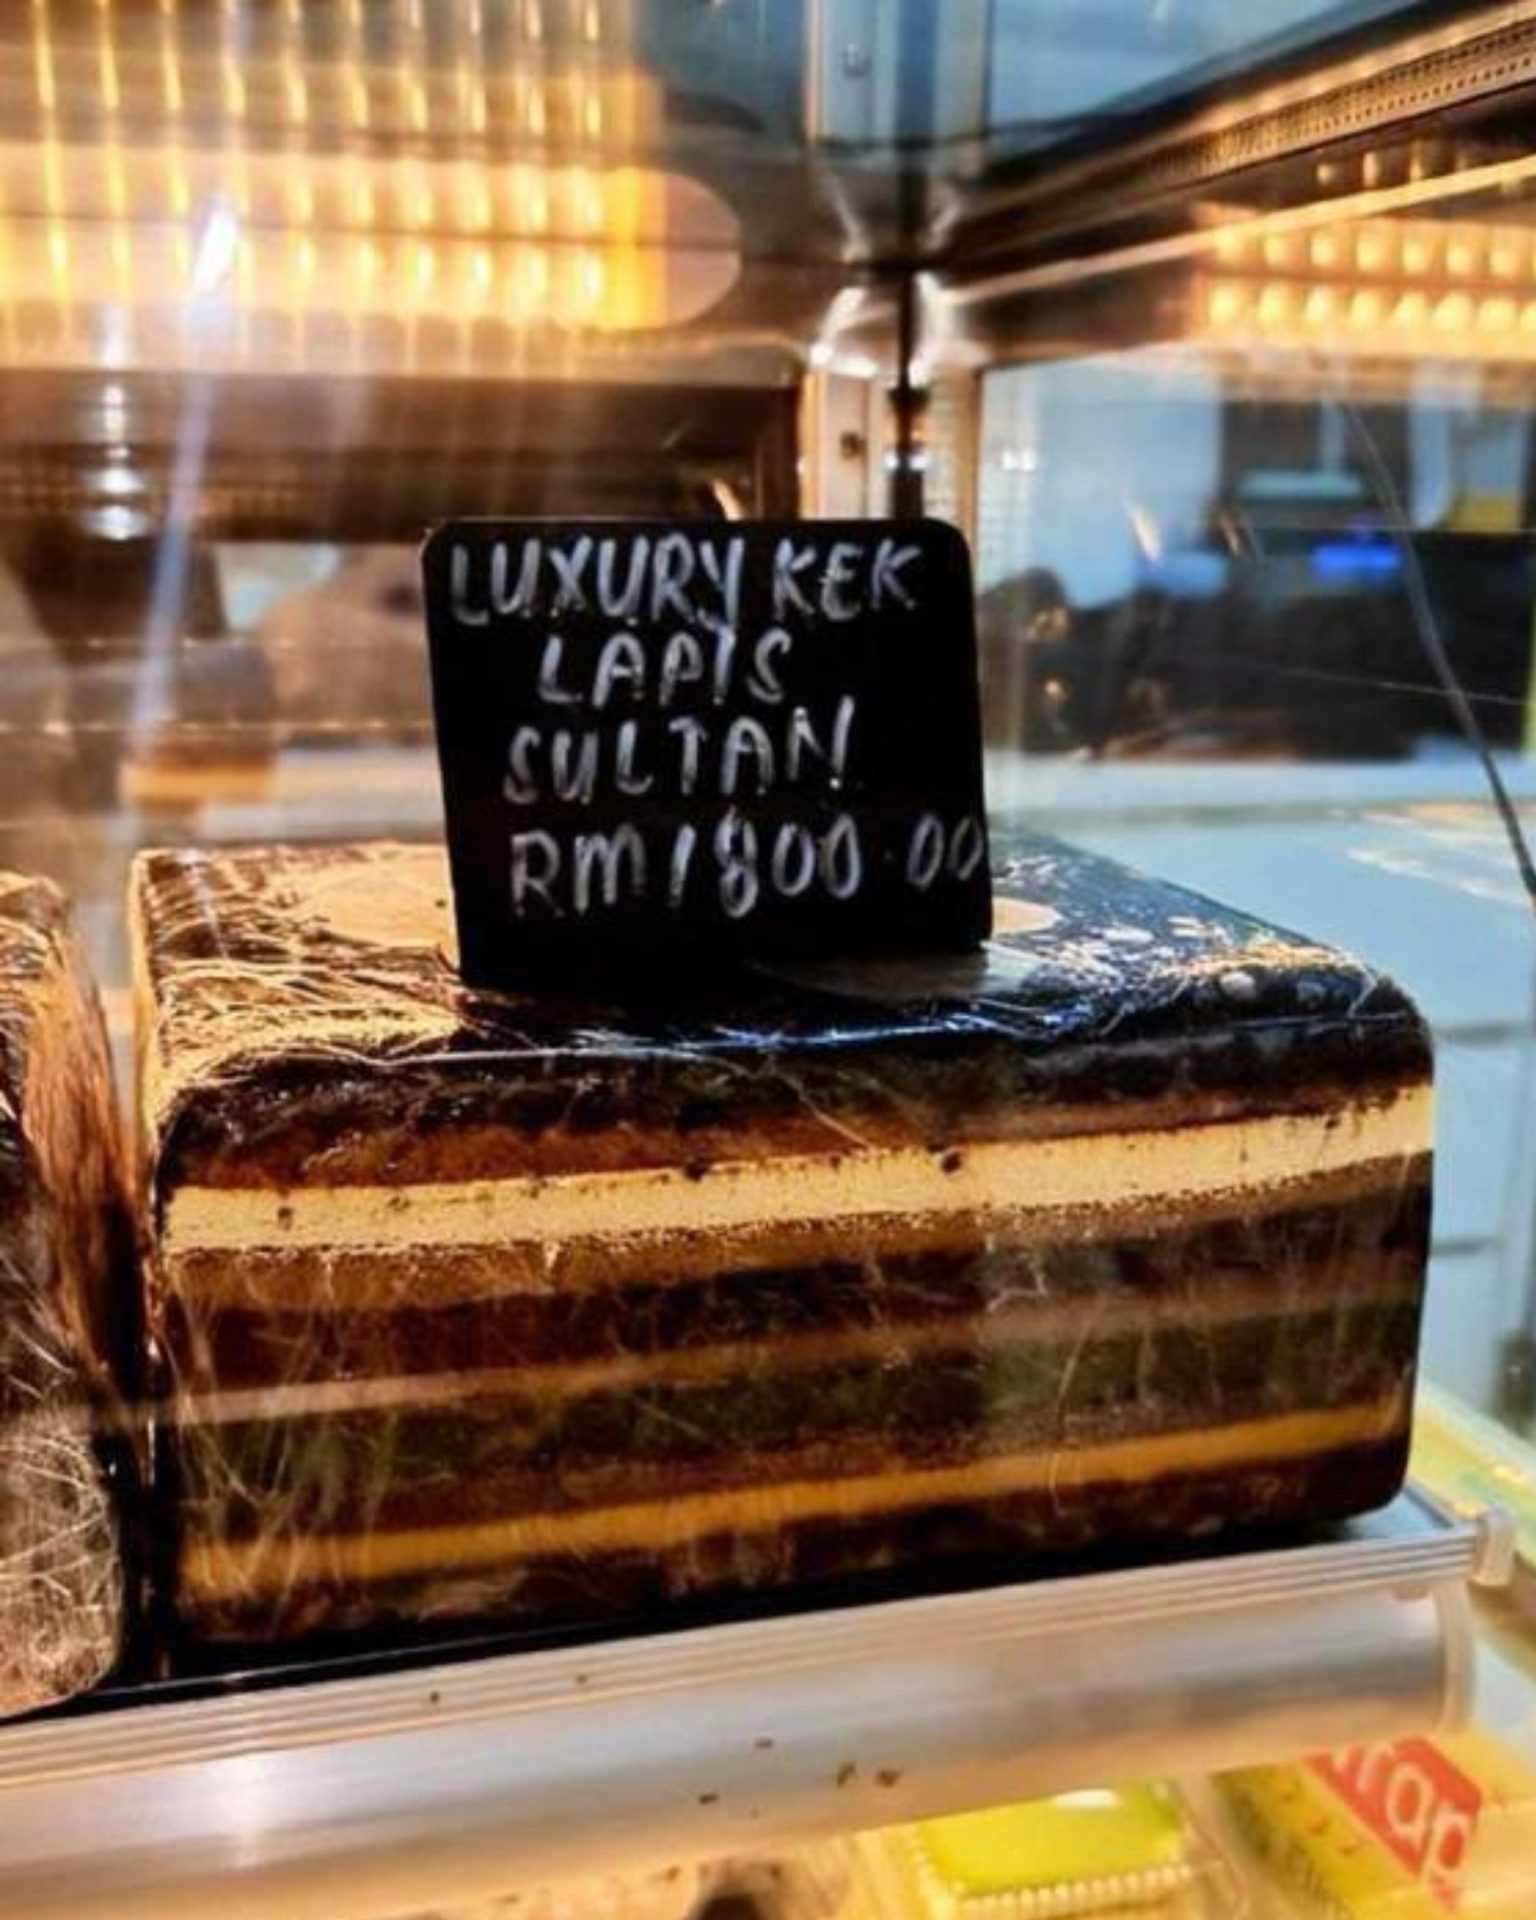 LUXURY KEK
LAPIS
SULTAN
RM1800.00
wrap